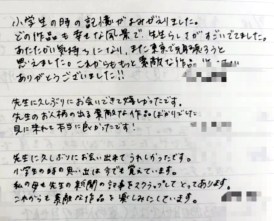 小学生の時の記憶がよみがえりました。
どの作品も幸せな風景で、先生らしさがすごいでました。
あたたかい気持ちになり、また来年も頑張ろうと
思えました。これからもっと素敵な作品
ありがとうございました!!
先生に久しぶりにお会いできて嬉しかったです。
先生のお人柄の出る素敵な作品ばかりでした
見に来れて本当に良かったです!
先生に久しぶりにお会い出来てうれしかったです。
小学生の時の思い出は今でも覚えています。
私の母も先生の新聞の記事をスクラップしてとってあります。
これからも素敵な作品を楽しみにしています。